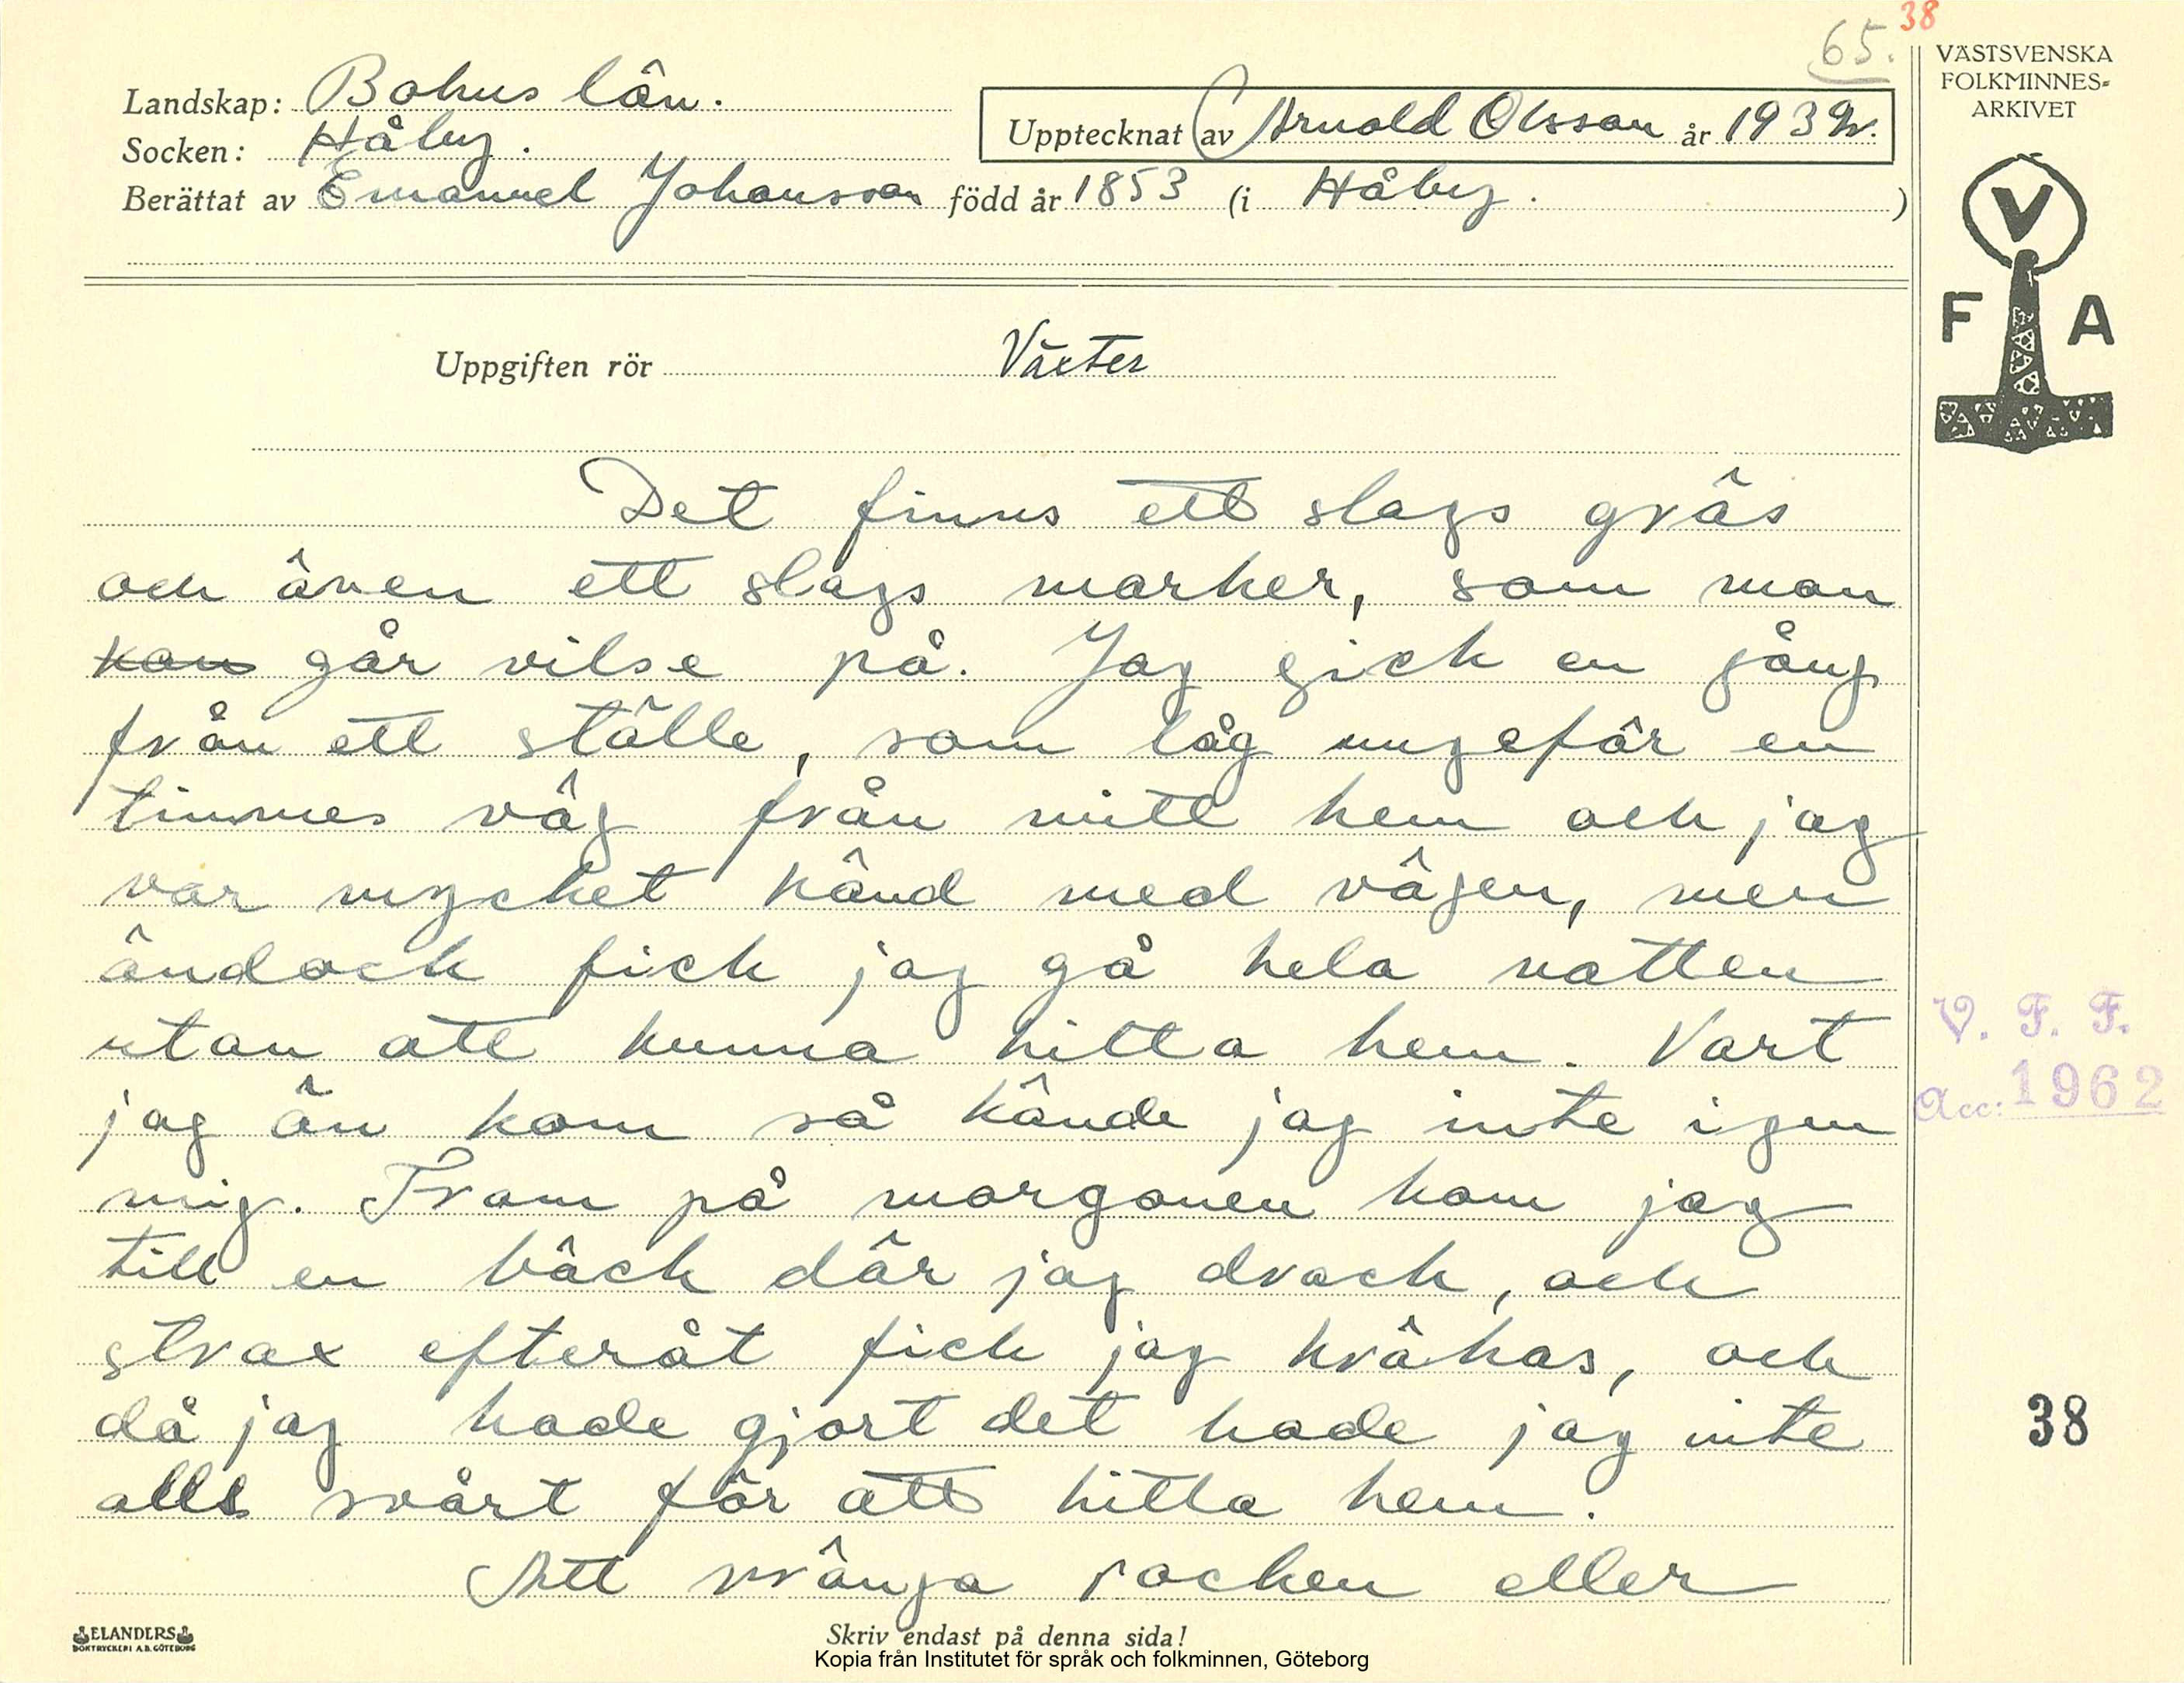 65. 38
VÄSTSVENSKA
FOLKMINNES=
ARKIVET
Landskap: Bohus län.
Socken: Håby.
Upptecknat av Arnold Olsson år 1932.
Berättat av Emanuel Johansson född år 1853 (i Håby. )
V
F A
Uppgiften rör Växter
Det finns ett slags gräs
och även ett slags marker, som man
kan går vilse på. Jag gick en gång
från ett ställe, som låg ungefär en
timmes väg från mitt hem och jag
var mycket känd med vägen, men
ändock fick jag gå hela natten
utan att kunna hitta hem. Vart
jag än kom så kände jag inte igen
mig. Fram på morgonen kom jag
till en bäck där jag drack, och
strax efteråt fick jag kräkas, och
då jag hade gjort det hade jag inte
alls svårt för att hitta hem.
Att vränga rocken eller
V. F. F.
Acc: 1962
38
ELANDERS
BOKTRYCKERI A.B. GÖTEBORG
Skriv endast på denna sida!
Kopia från Institutet för språk och folkminnen, Göteborg